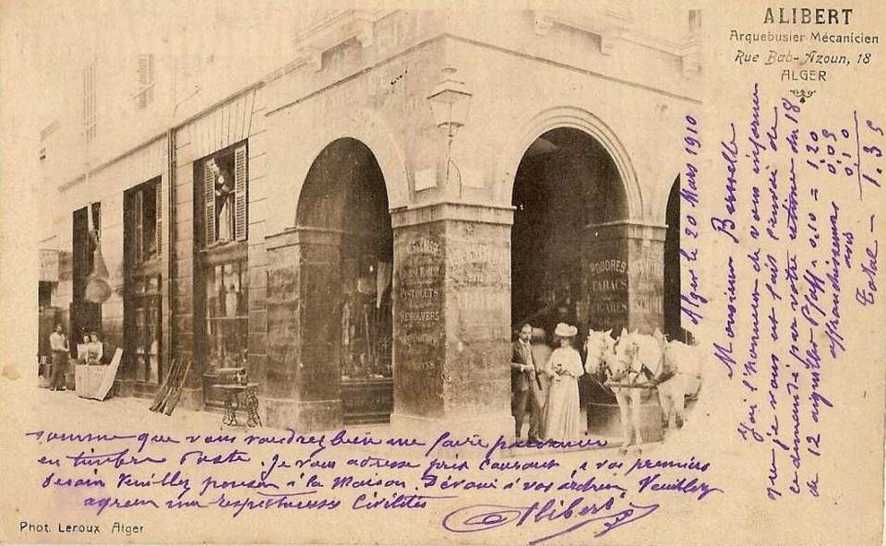 ALIBERT
Arquebusier-Mécanicien
Rue Bab-Azoun, 18
ALGER
Alger le 20 Mars 1910
Monsieur
J'ai l'honneur de vous informer
que je vous ai fait l'envoi de
ce demandé par votre estimée du 18
de 12 aiguilles Pfaff à 0.10 = 1,20
affranchissement 0,05
avis 0,10
Total - 1.35
somme que vous voudrez bien me faire parvenir
en timbre Poste. Je vous adresse prix courant, à vos premiers
besoin Veuillez penser à la Maison. Dévoué à vos ordres, Veuillez
agréer mes respectueuses Civilités
Alibert
CHASSE
PISTOLETS
REVOLVERS
POUDRES
TABACS
CIGARES
Phot. Leroux Alger